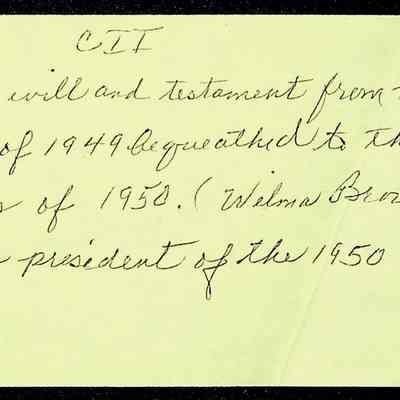 CII
will and testament from
of 1949 bequeathed to th
s of 1950. (Wilma Brow
president of the 1950